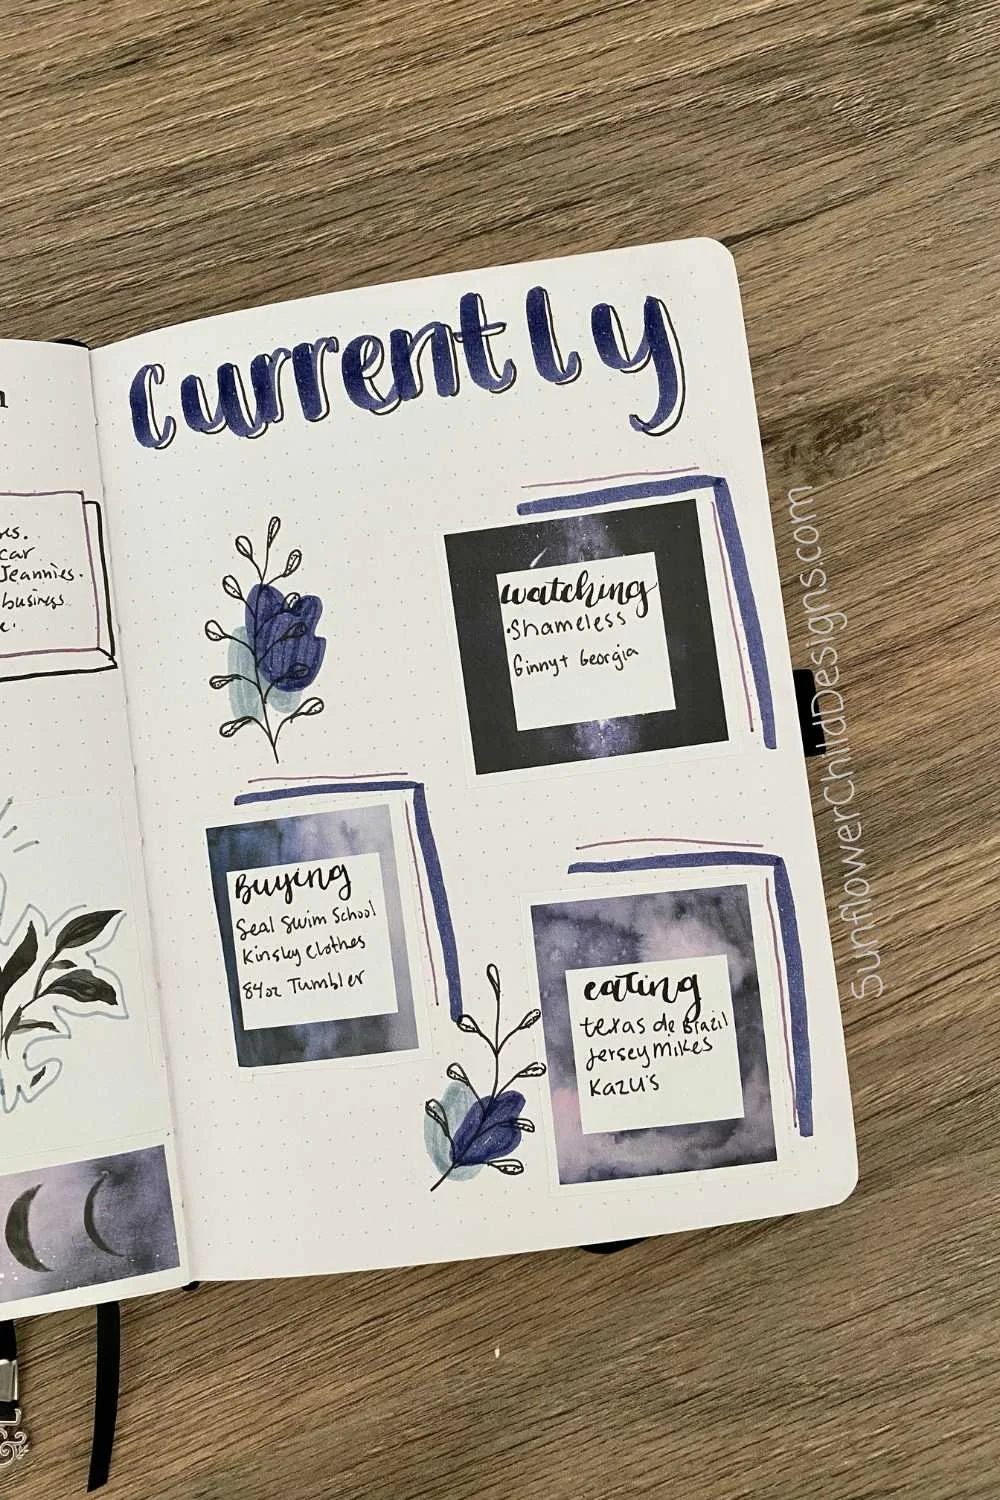 ses.
car
Jeannies.
business
Currently
watching
·Shameless
Ginny+ Georgia
Buying
Seal Swim School
Kinsky Clothes
84oz Tumbler
eating
texas de Brazil
Jersey Mikes
Kazu's
SunflowerChildDesigns.com